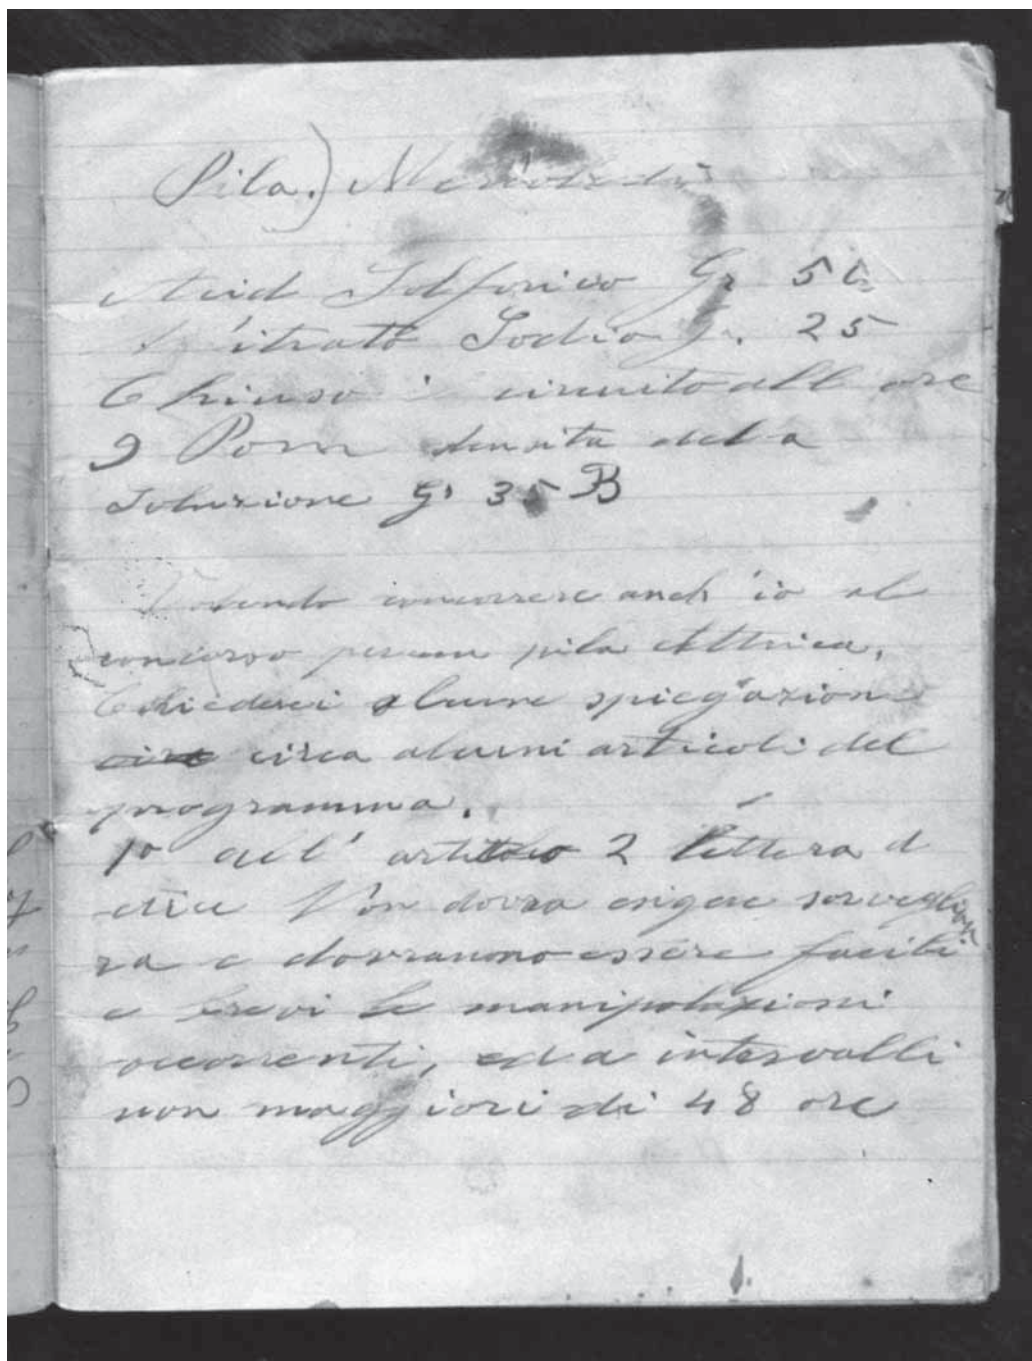 Pila.) Mercoledì
Acid Solforico Gr 50
Nitrato Sodio Gr. 25
Chiuso i circuito all ore
9 Pom densita della
Soluzione G. 35 B
Volendo concorrere anch'io al
concorso per una pila elettrica,
Chiederei alcune spiegazioni
circa alcuni articoli del
programma.
1º all' articolo 2 lettera d
dice Non dovra esigere sorveglian
za e dovranno essere facili
e brevi le manipolazioni
occorrenti, ed a intervalli
non maggiori di 48 ore